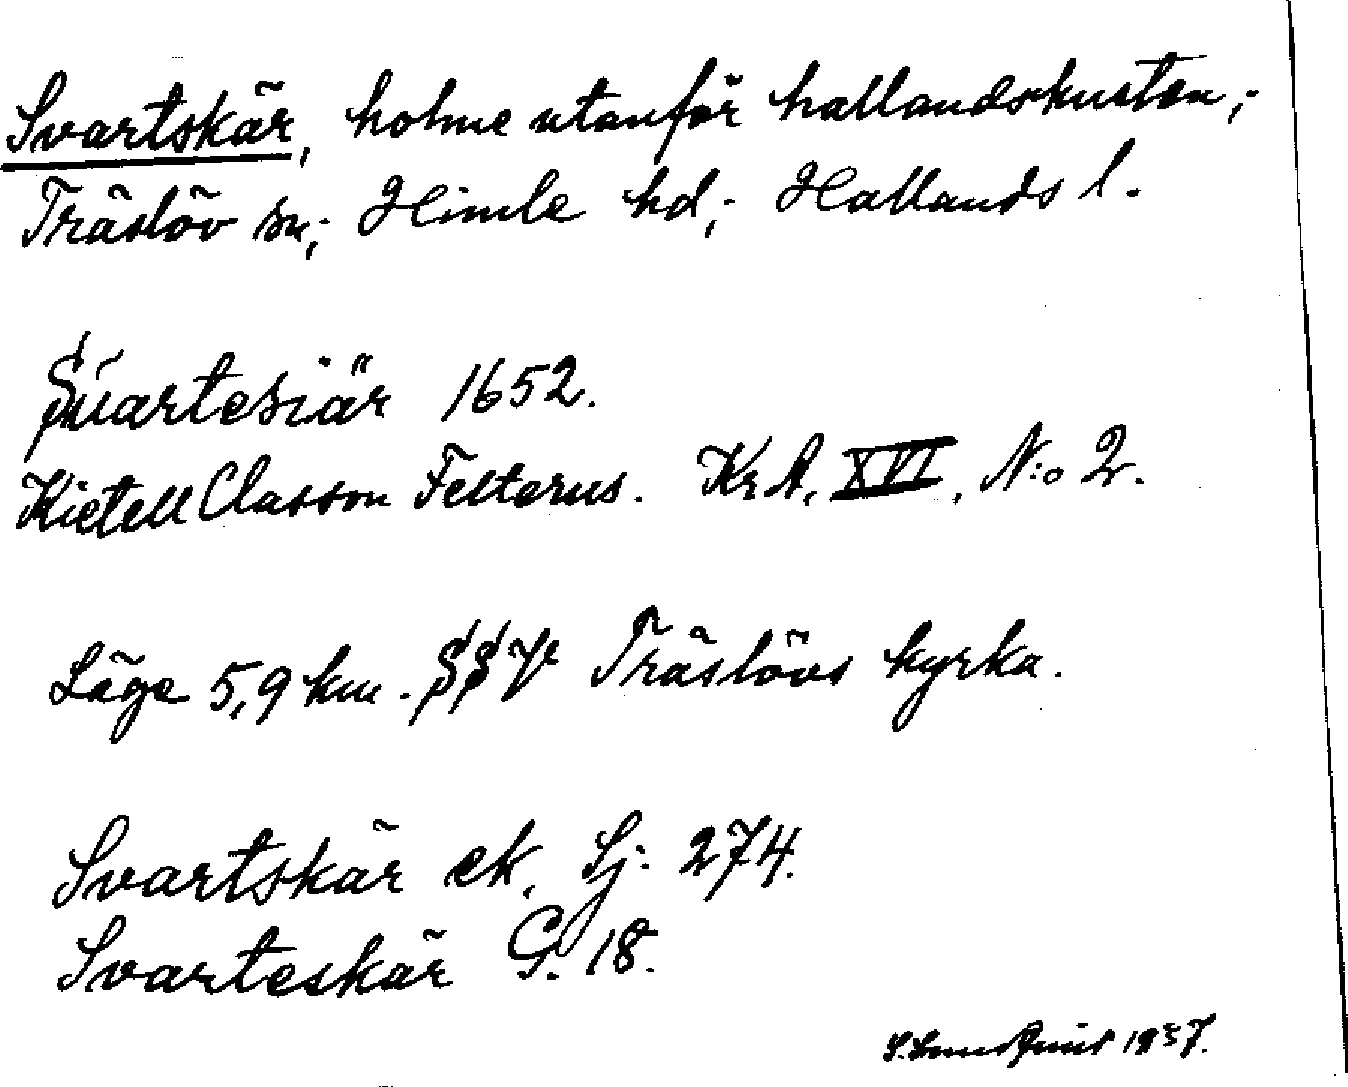 Svartskär, holme utanför hallandskusten,-
Träslöv sn,- Himle hd,- Hallands l.
Suartesiär 1652.
Kietell Classon Felterus. KrA, XVI, N:o 2.
Läge 5,9 km. SSV Träslövs kyrka.
Svartskär ek. Sj. 274.
Svarteskär G. 18.
1937.